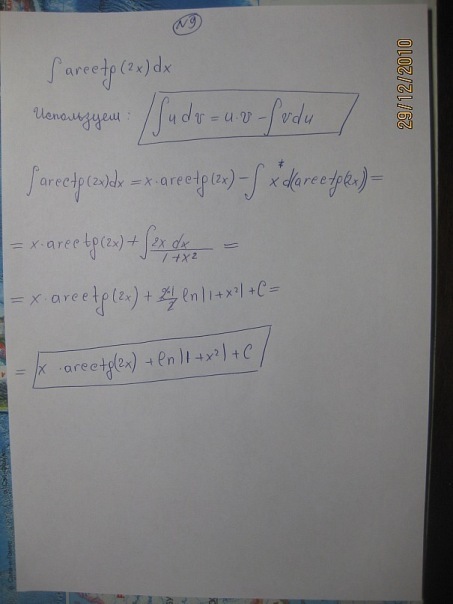 №9
∫ arcctg(2x) dx
Используем: ∫ u dv = u·v - ∫ v du
∫ arcctg(2x)dx = x·arcctg(2x) - ∫ x * d(arcctg(2x)) =
= x·arcctg(2x) + ∫ 2x dx / 1+x² =
= x·arcctg(2x) + 2·1/2 ln|1+x²| + C =
= x·arcctg(2x) + ln|1+x²| + C
29/12/2010